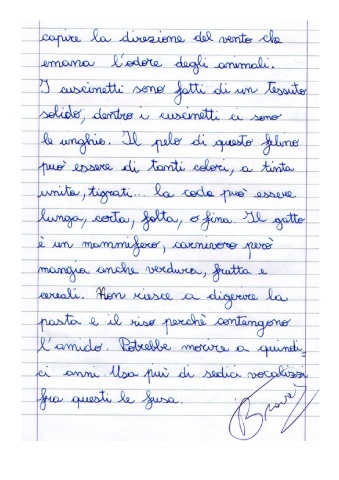 capire la direzione del vento che
emana l'odore degli animali.
I cuscinetti sono fatti di un tessuto
solido, dentro i cuscinetti ci sono
le unghie. Il pelo di questo felino
può essere di tanti colori, a tinta
unita, tigrati... la coda può essere
lunga, corta, folta, o fina. Il gatto
è un mammifero, carnivoro però
mangia anche verdura, frutta e
cereali. Non riesce a digerire la
pasta e il riso perchè contengono
l'amido. Potrebbe morire a quindi-
ci anni. Usa più di sedici vocalizzi
fra questi le fusa.
Brava